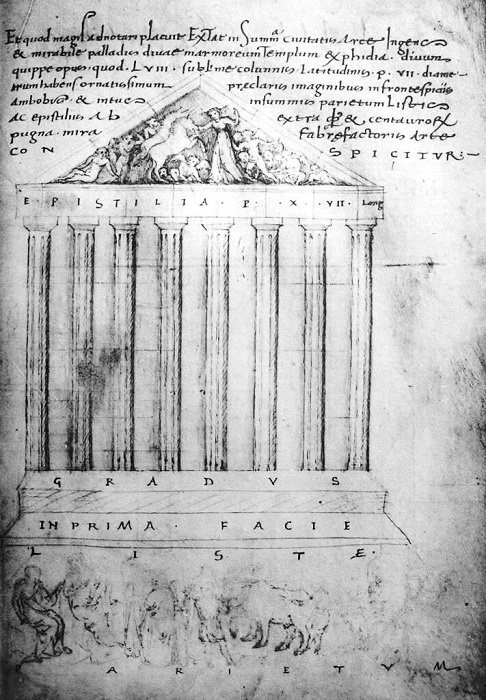 Et quod magis adnotari placuit Extat in Summa Civitatis Arce Ingens
& mirabile palladis divae marmoreum Templum ex phidia divum
quippe opus quod LVIII sublime columnis Latitudinis p. VII diame-
trum habens ornatissimum preclaris imaginibus in frontespiciis
Ambobus & intus in summis parietum Listris
ac epistiliis Ab extra & centaurorum
pugna mira fabrefactoris Arte
CON SPICITUR
EPISTILIA · P · X · VII · Long
GRADVS
IN PRIMA · FACIE
LISTE ·
ARIETVM